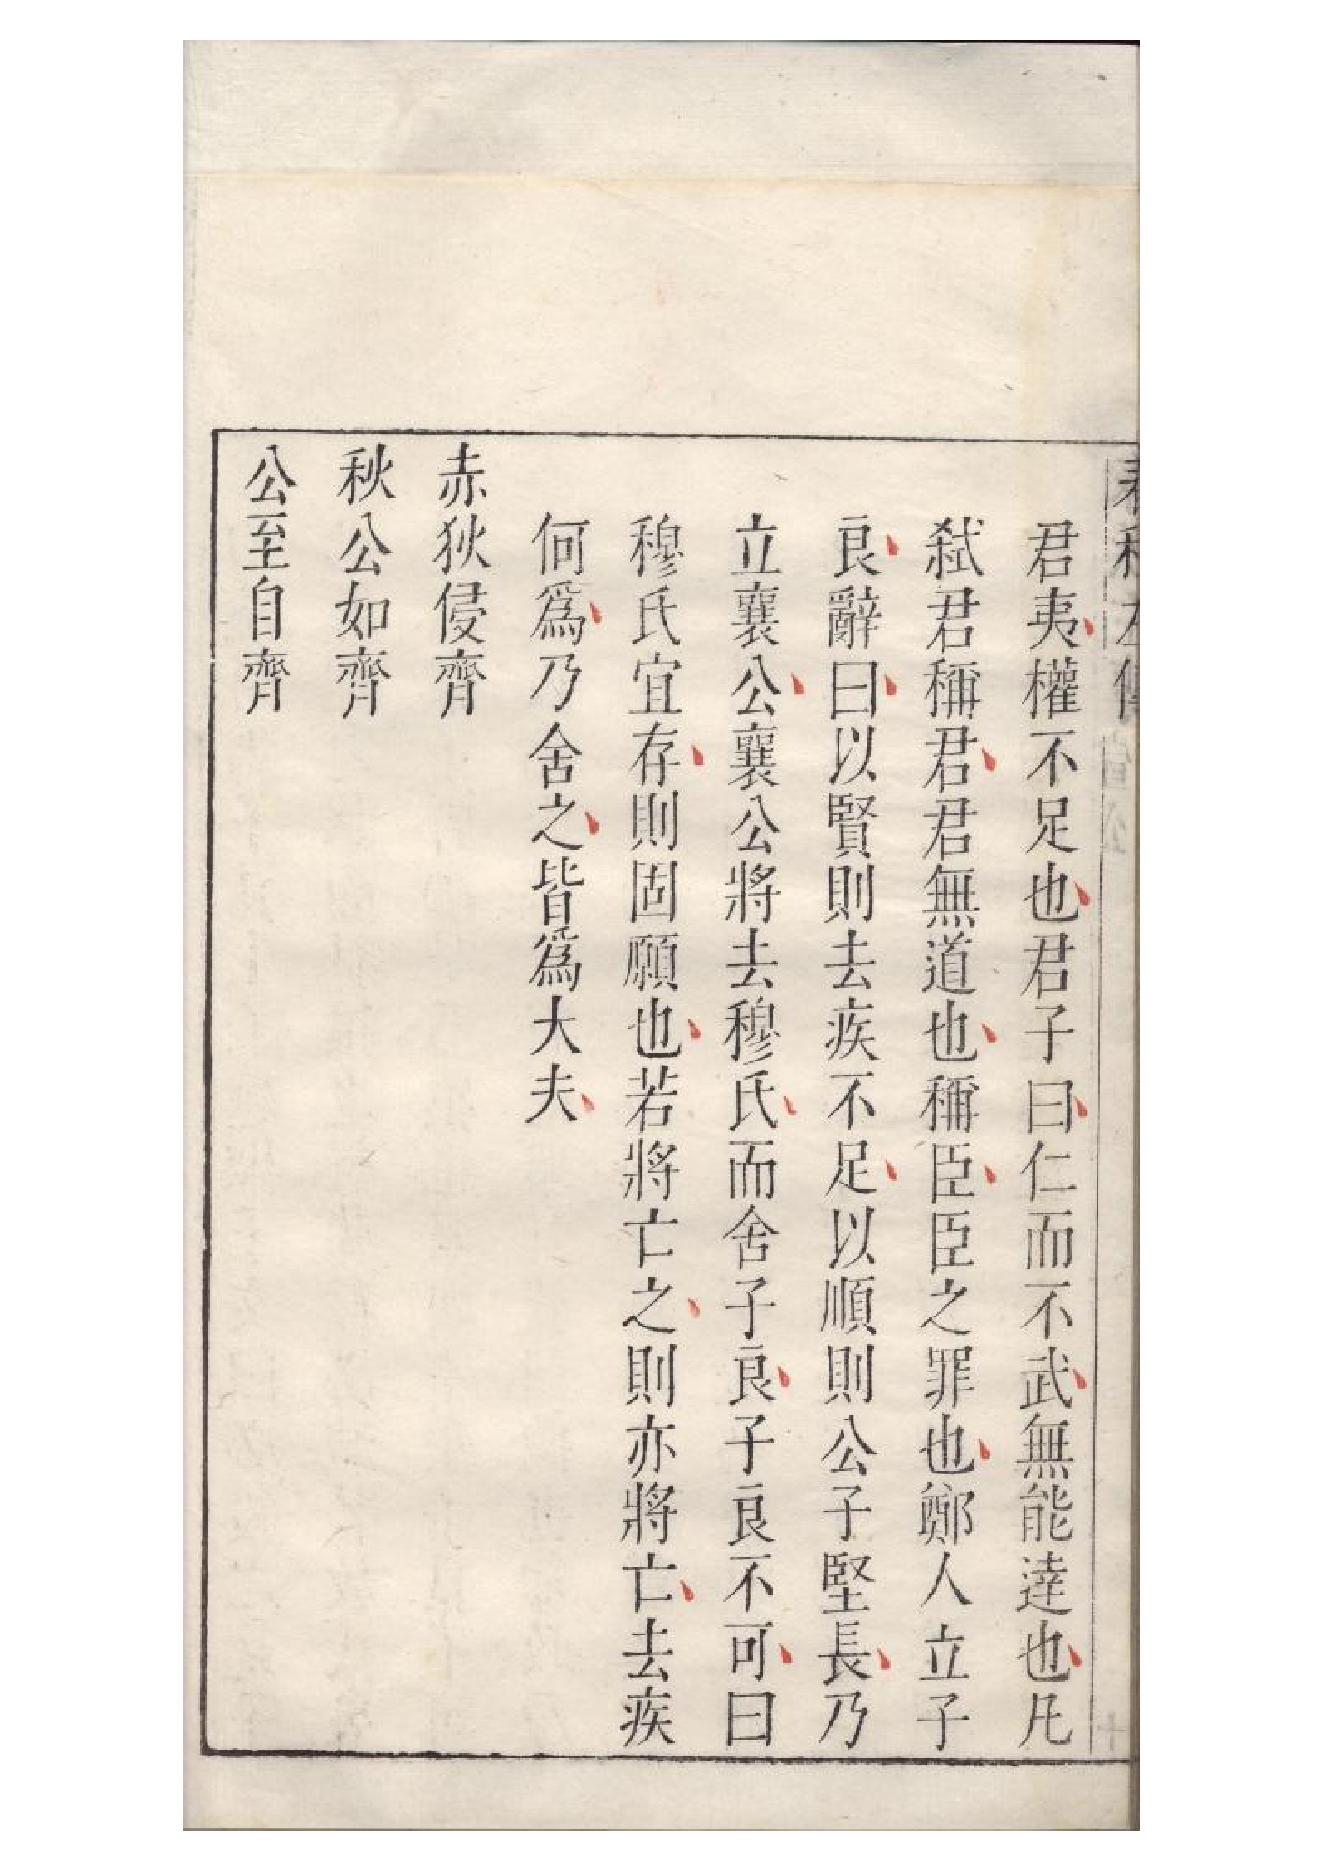 君夷權不足也君子曰仁而不武無能達也凡
弑君稱君君無道也稱臣臣之罪也鄭人立子
良辭曰以賢則去疾不足以順則公子堅長乃
立襄公襄公將去穆氏而舍子良子良不可曰
穆氏宜存則固願也若將亡之則亦將亡去疾
何爲乃舍之皆爲大夫
赤狄侵齊
秋公如齊
公至自齊